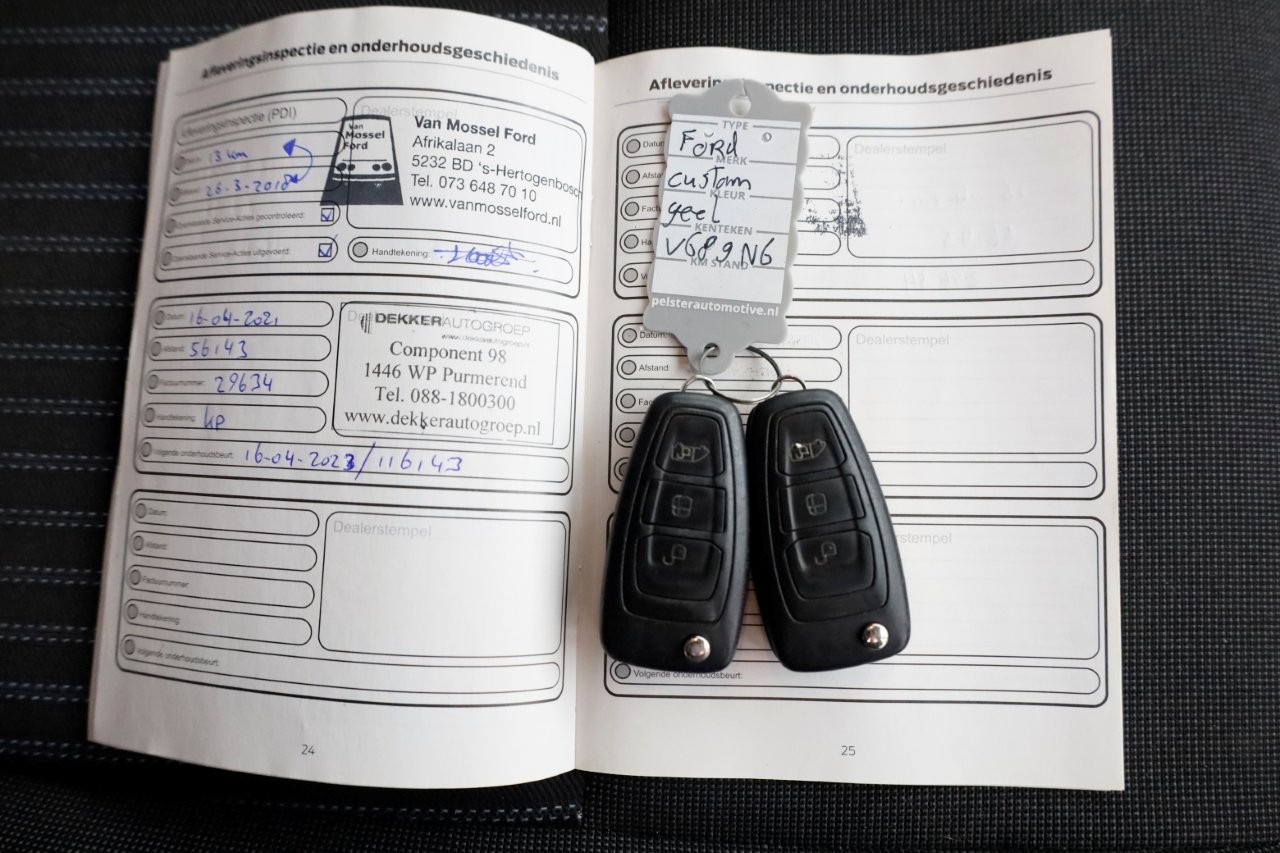 Afleveringsinspectie en onderhoudsgeschiedenis
Afleveringsinspectie (PDI)
13 km
26-3-2018
Service-Acties gecontroleerd:
Service-Acties uitgevoerd:
Dealerstempel
Van Mossel Ford
Van Mossel Ford
Afrikalaan 2
5232 BD 's-Hertogenbosch
Tel. 073 648 70 10
www.vanmosselford.nl
Handtekening:
Datum: 16-04-2021
Afstand: 56143
Factuurnummer: 29634
Handtekening:
Volgende onderhoudsbeurt: 16-04-2023/116143
DEKKERAUTOGROEP
www.dekkerautogroep.nl
Component 98
1446 WP Purmerend
Tel. 088-1800300
www.dekkerautogroep.nl
Datum:
Afstand:
Factuurnummer:
Handtekening:
Volgende onderhoudsbeurt:
Dealerstempel
24
Afleveringsinspectie en onderhoudsgeschiedenis
Dealerstempel
Datum:
Afstand:
Dealerstempel
Volgende onderhoudsbeurt:
25
TYPE
Ford
MERK
custom
KLEUR
geel
KENTEKEN
VG89NG
KM STAND
pelsterautomotive.nl